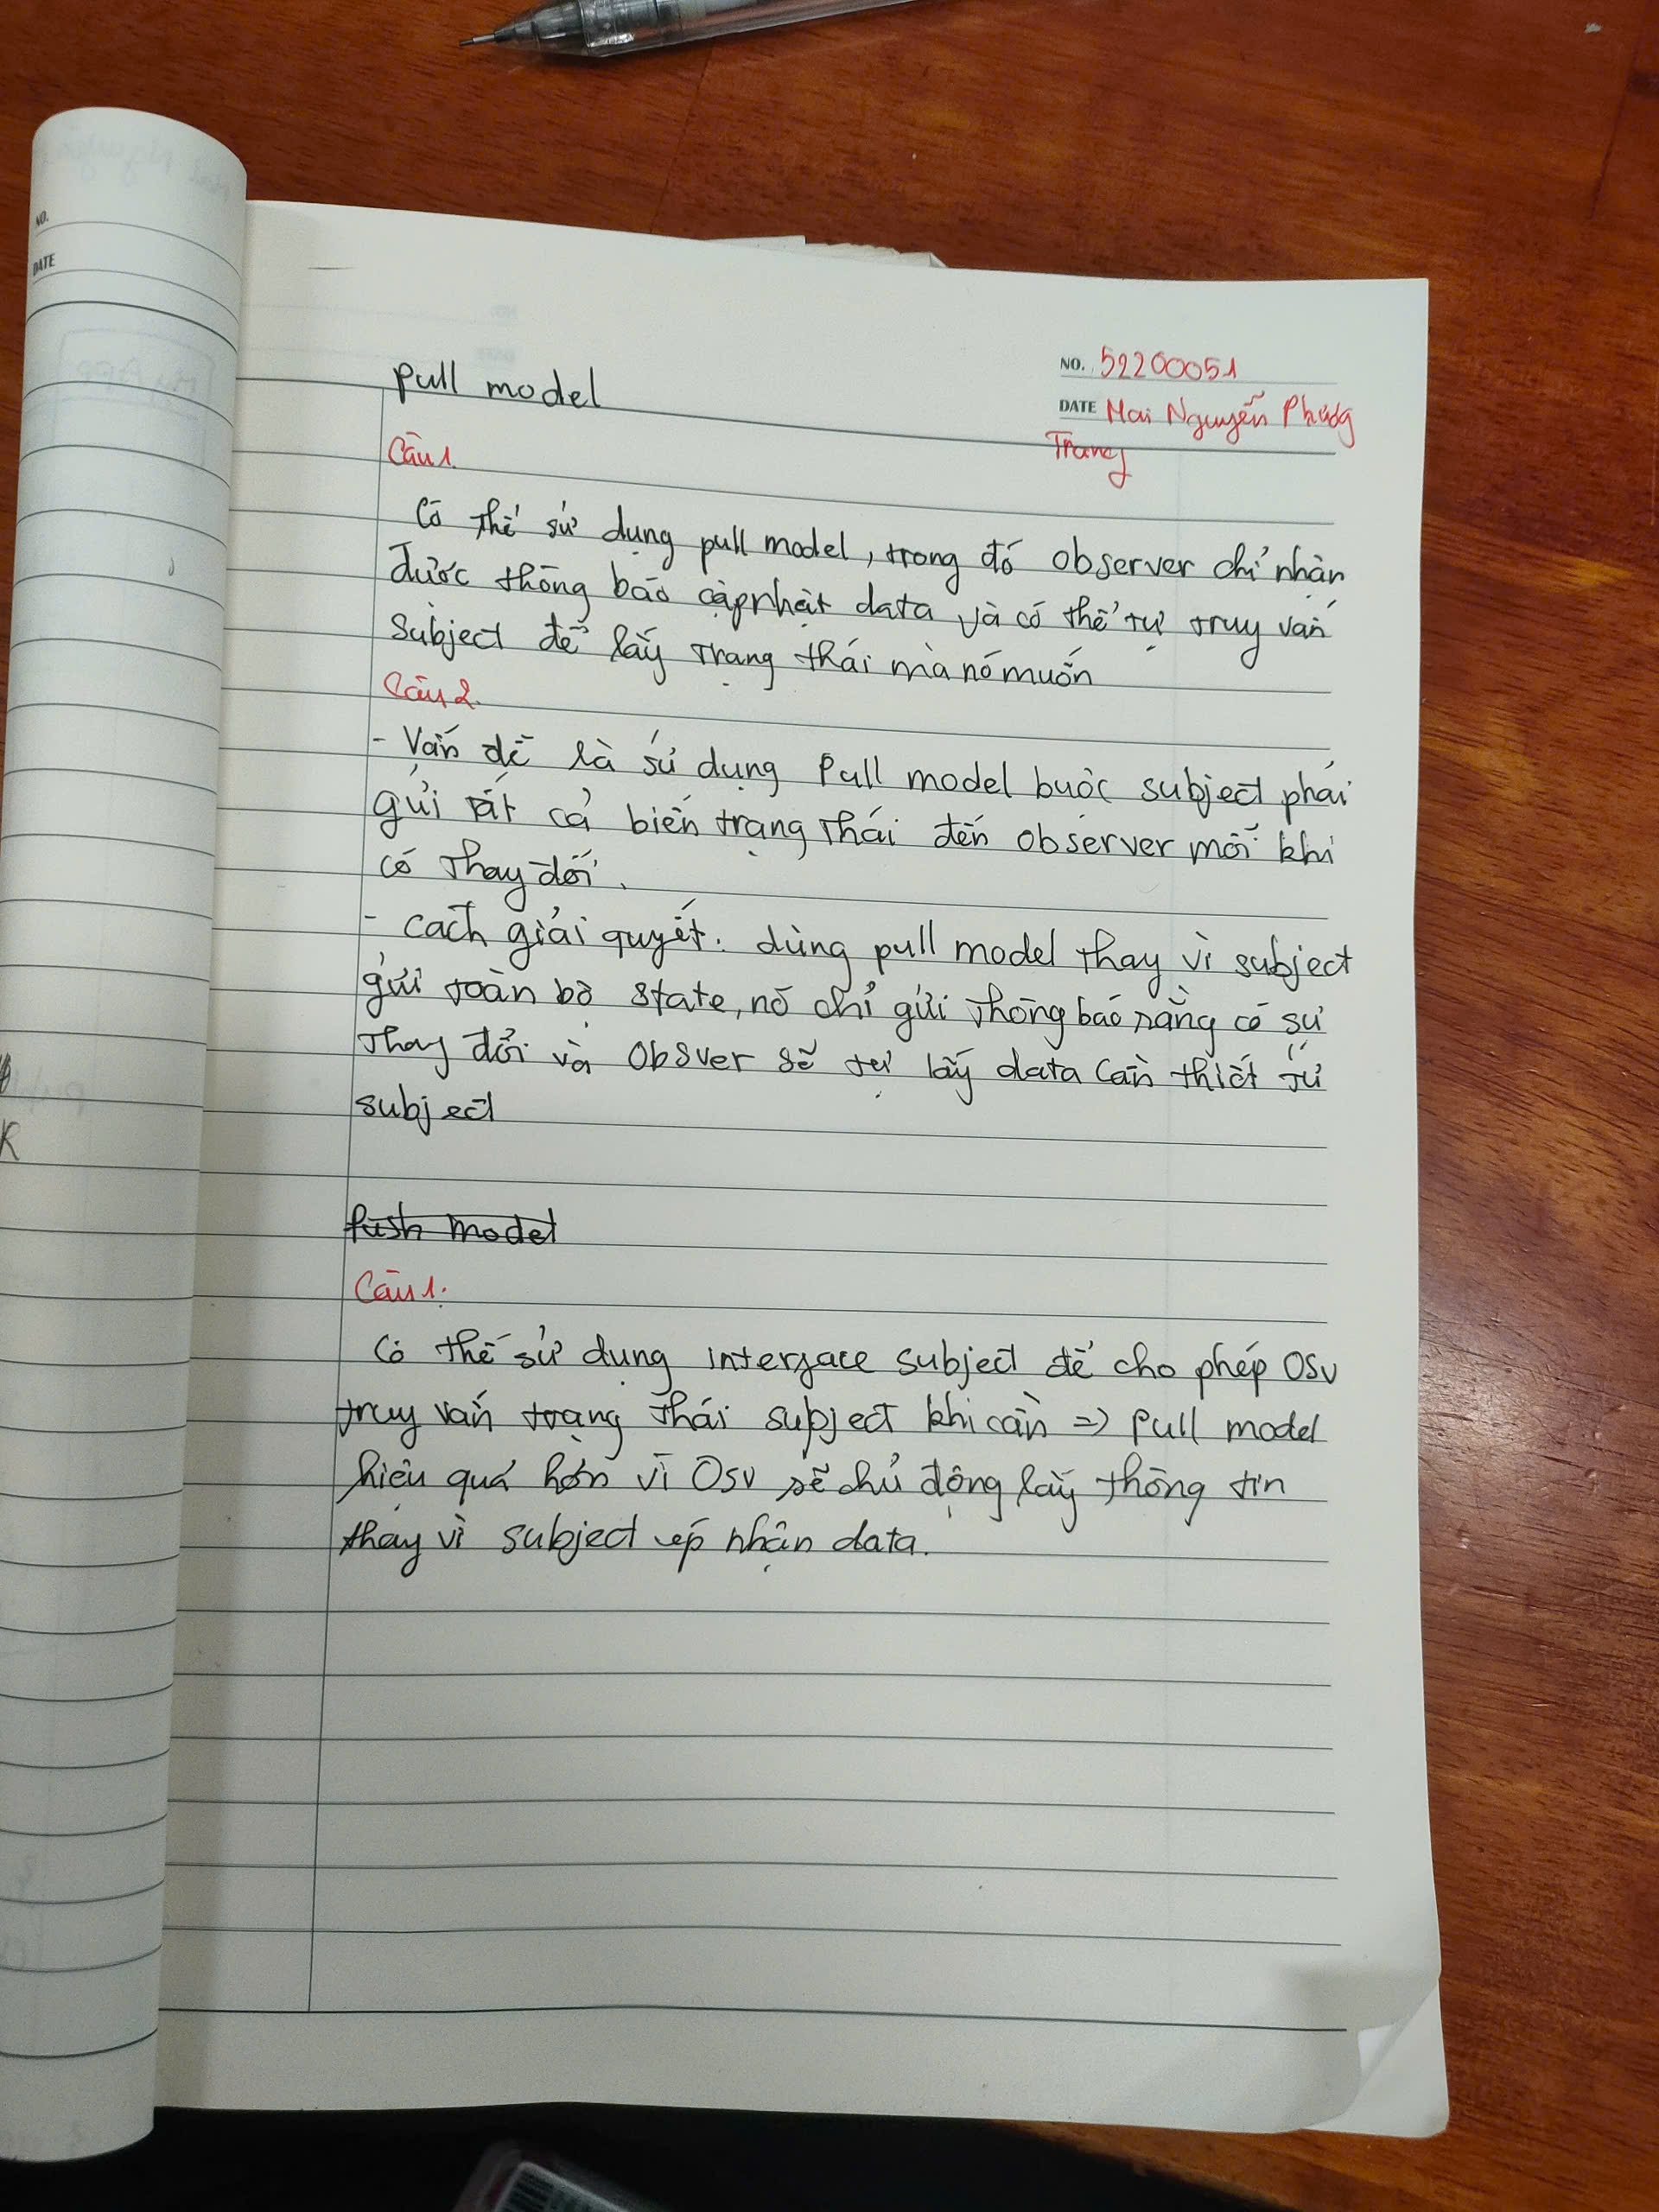 NO.
DATE
NO. 52200051
DATE Mai Nguyễn Phương
Trang
pull model
Câu 1.
Có thể sử dụng pull model, trong đó observer chỉ nhận
được thông báo cập nhật data và có thể tự truy vấn
subject để lấy trạng thái mà nó muốn
Câu 2.
- Vấn đề là sử dụng Pull model buộc subject phải
gửi tất cả biến trạng thái đến observer mỗi khi
có thay đổi.
- cách giải quyết: dùng pull model thay vì subject
gửi toàn bộ state, nó chỉ gửi thông báo rằng có sự
thay đổi và Obsver sẽ tự lấy data cần thiết từ
subject
Push model
Câu 1:
Có thể sử dụng interface subject để cho phép Osv
truy vấn trạng thái subject khi cần => Pull model
hiệu quả hơn vì Osv sẽ chủ động lấy thông tin
thay vì subject ép nhận data.
K